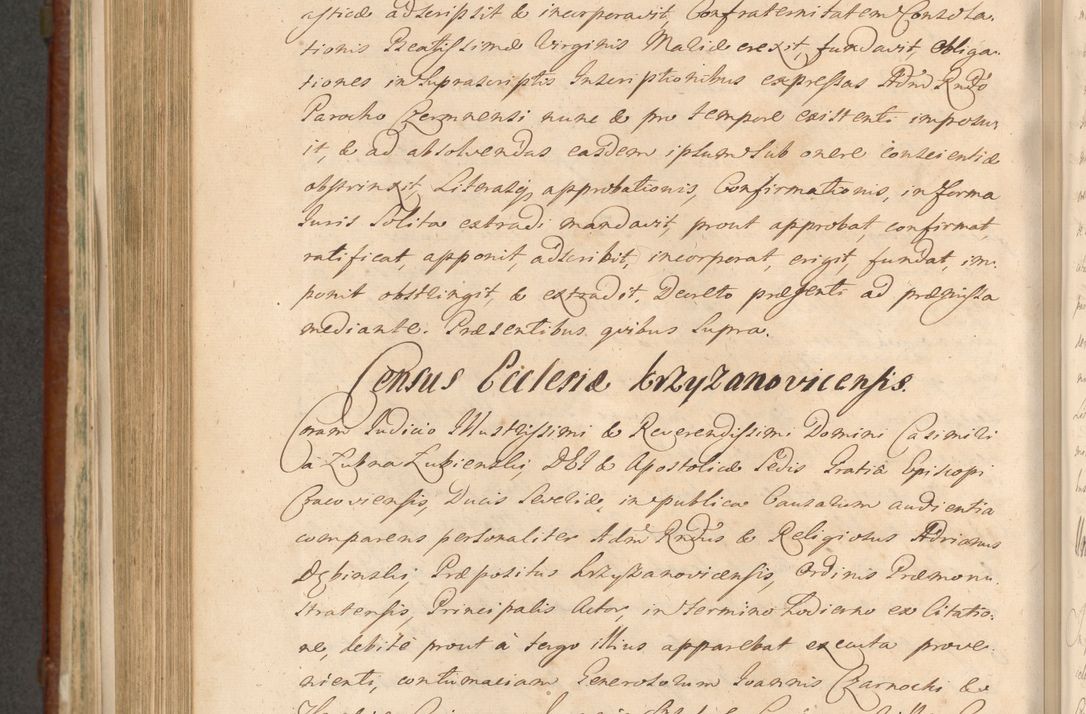 asticæ adscripsit & incorporavit, Confraternitatem Consola-
tionis Beatissimæ Virginis Mariæ erexit, fundavit, obliga-
tiones in suprascriptis Inscriptionibus expressas Adm̃ Rñdo
Parocho Czermnensi nunc & pro tempore existenti imposu-
it, & ad absolvendas easdem ipsum sub onere conscientiæ
obstrinxit, Literasq, approbationis, Confirmationis, in forma
Iuris solita extradi mandavit, prout approbat, confirmat,
ratificat, apponit, adscribit, incorporat, erigit, fundat, im-
ponit obstringit, & extradit, Decreto præsenti ad præmissa
mediante. Præsentibus quibus supra.
Census Ecclesiæ Krzyzanovicensis.
Coram Iudicio Illustrissimi & Reverendissimi Domini Casimiri
à Lubna Lubienski, DEI & Apostolicæ Sedis Gratiâ Episcopi
Cracoviensis, Ducis Severiæ, in publica Causarum audientia
comparens personaliter Adm̃ Rñdus & Religiosus Adrianus
Dębinski, Præpositus Krzyzanovicensis, Ordinis Præmon-
stratensis, Principalis Actor, in termino hodierno ex Citatio-
ne, debitè prout à tergo illius apparebat executa prove-
nienti, contumaciam Generosorum Ioannis Czarnocki &